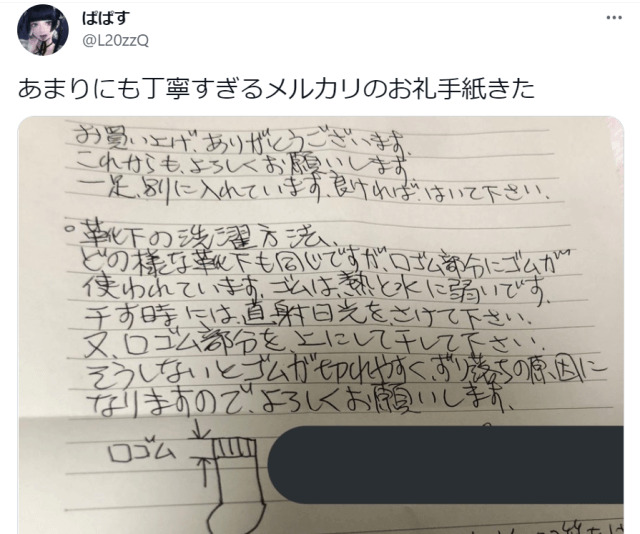 ぱぱす
@L20zzQ
あまりにも丁寧すぎるメルカリのお礼手紙きた
お買い上げ、ありがとうございます。
これからも、よろしくお願いします
一足、別に入れています、良ければ、はいて下さい。
。靴下の洗濯方法、
どの様な靴下も同じですが、口ゴム部分にゴムが
使われています、ゴムは、熱と水に弱いです。
干す時には、直射日光を、さけて下さい。
又、口ゴム部分を、上にして干して下さい。
そうしないとゴムが切れやすく、ずり落ちの原因に
なりますので、よろしくお願いします。
口ゴム